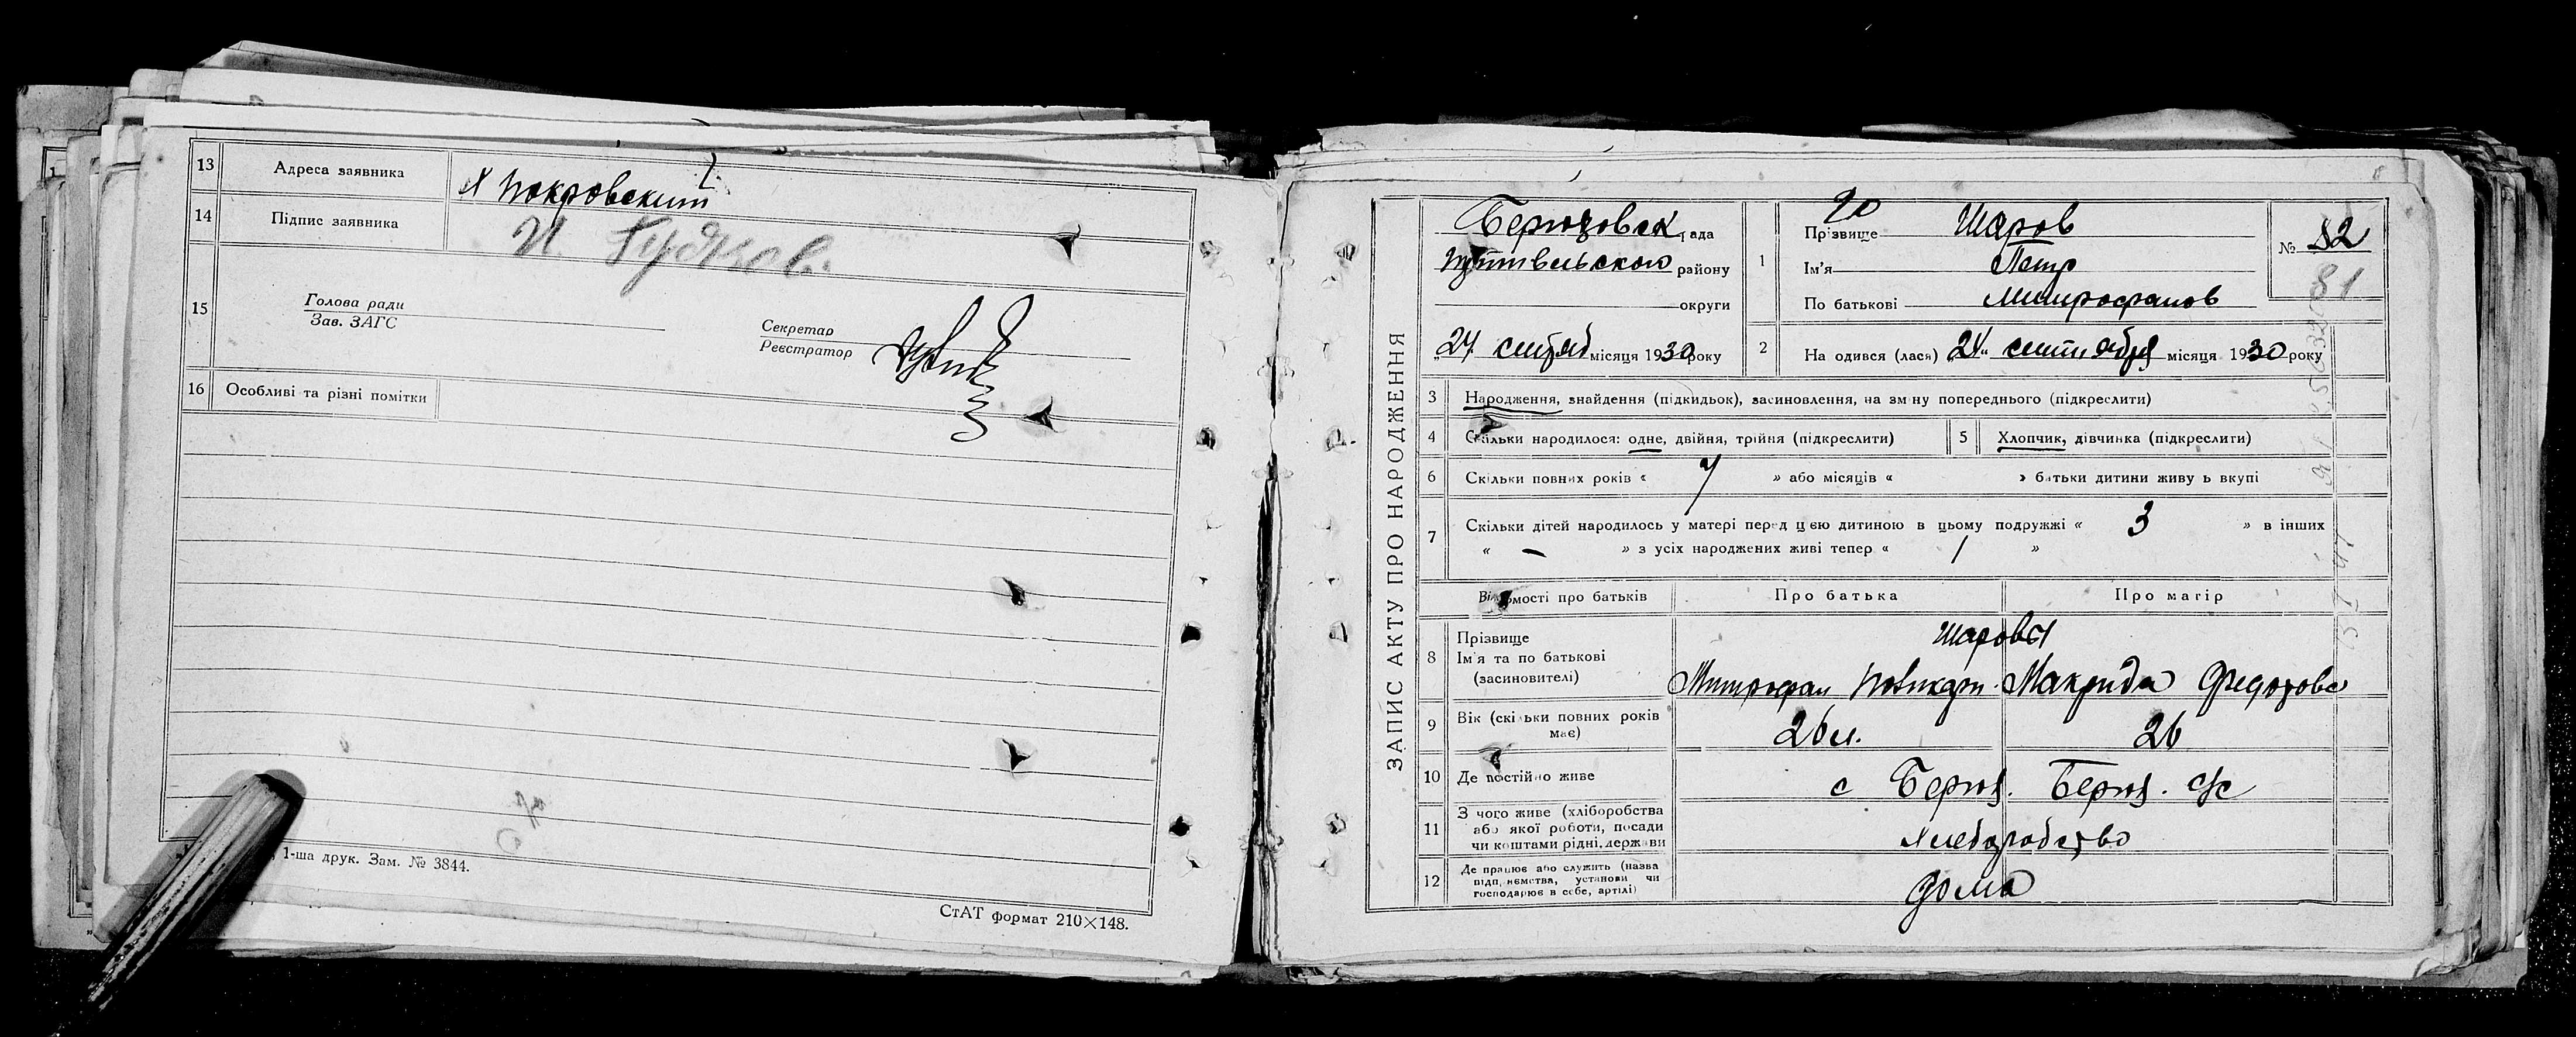 13 Адреса заявника Х Покровский
14 Підпис заявника И. Гудков.
15 Голова ради
Зав. ЗАГС
Секретар
Реєстратор
16 Особливі та різні помітки
1-ша друк. Зам. № 3844.
СтАТ формат 210×148.
ЗАПИС АКТУ ПРО НАРОДЖЕННЯ
рада
Путивльського району
округи
24 сентяб місяця 1930 року
20
1 Прізвище Шаров
Ім'я Петр
По батькові Митрофанов
№ 82
81
2 Народився (лася) „24“ сентября місяця 1930 року
3 Народження, знайдення (підкидьок), засиновлення, на зміну попереднього (підкреслити)
4 Скільки народилося: одне, двійня, трійня (підкреслити)
5 Хлопчик, дівчинка (підкреслити)
6 Скільки повних років « 7 » або місяців « » батьки дитини живуть вкупі
7 Скільки дітей народилось у матері перед цією дитиною в цьому подружжі « 3 » в інших
« — » з усіх народжених живі тепер « 1 »
Відомості про батьків Про батька Про матір
8 Прізвище
Ім'я та по батькові
(засиновителі)
Шаровы
Митрофан Макрида Федотова
9 Вік (скільки повних років має) 26 л. 26
10 Де постійно живе с Берюз. Берюз. с/с
11 З чого живе (хліборобства
або якої роботи, посади
чи коштами рідні, держави
Хлеборобство
12 Де працює або служить (назва
підприємства, установи чи
господарює в себе, артілі)
дома